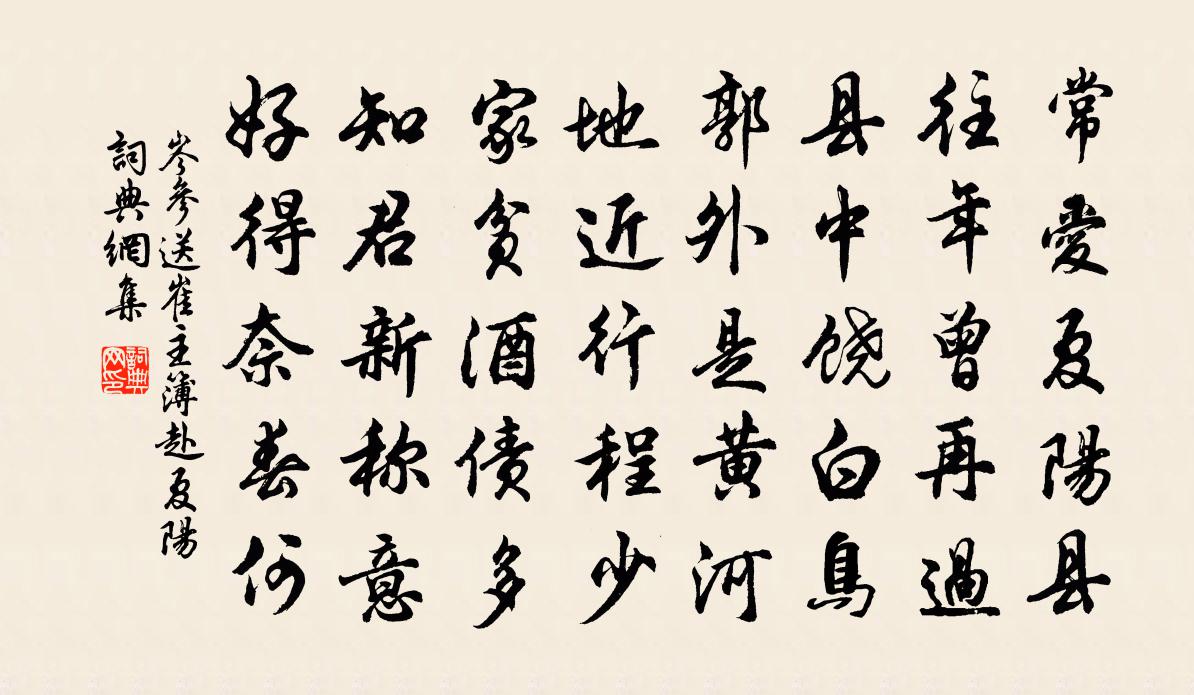 常愛夏陽县
往年曾再過
县中饶白鳥
郭外是黄河
地近行程少
家貧酒債多
知君新称意
好得奈春何
岑參送崔主簿赴夏陽
詞典網集
詞典網印